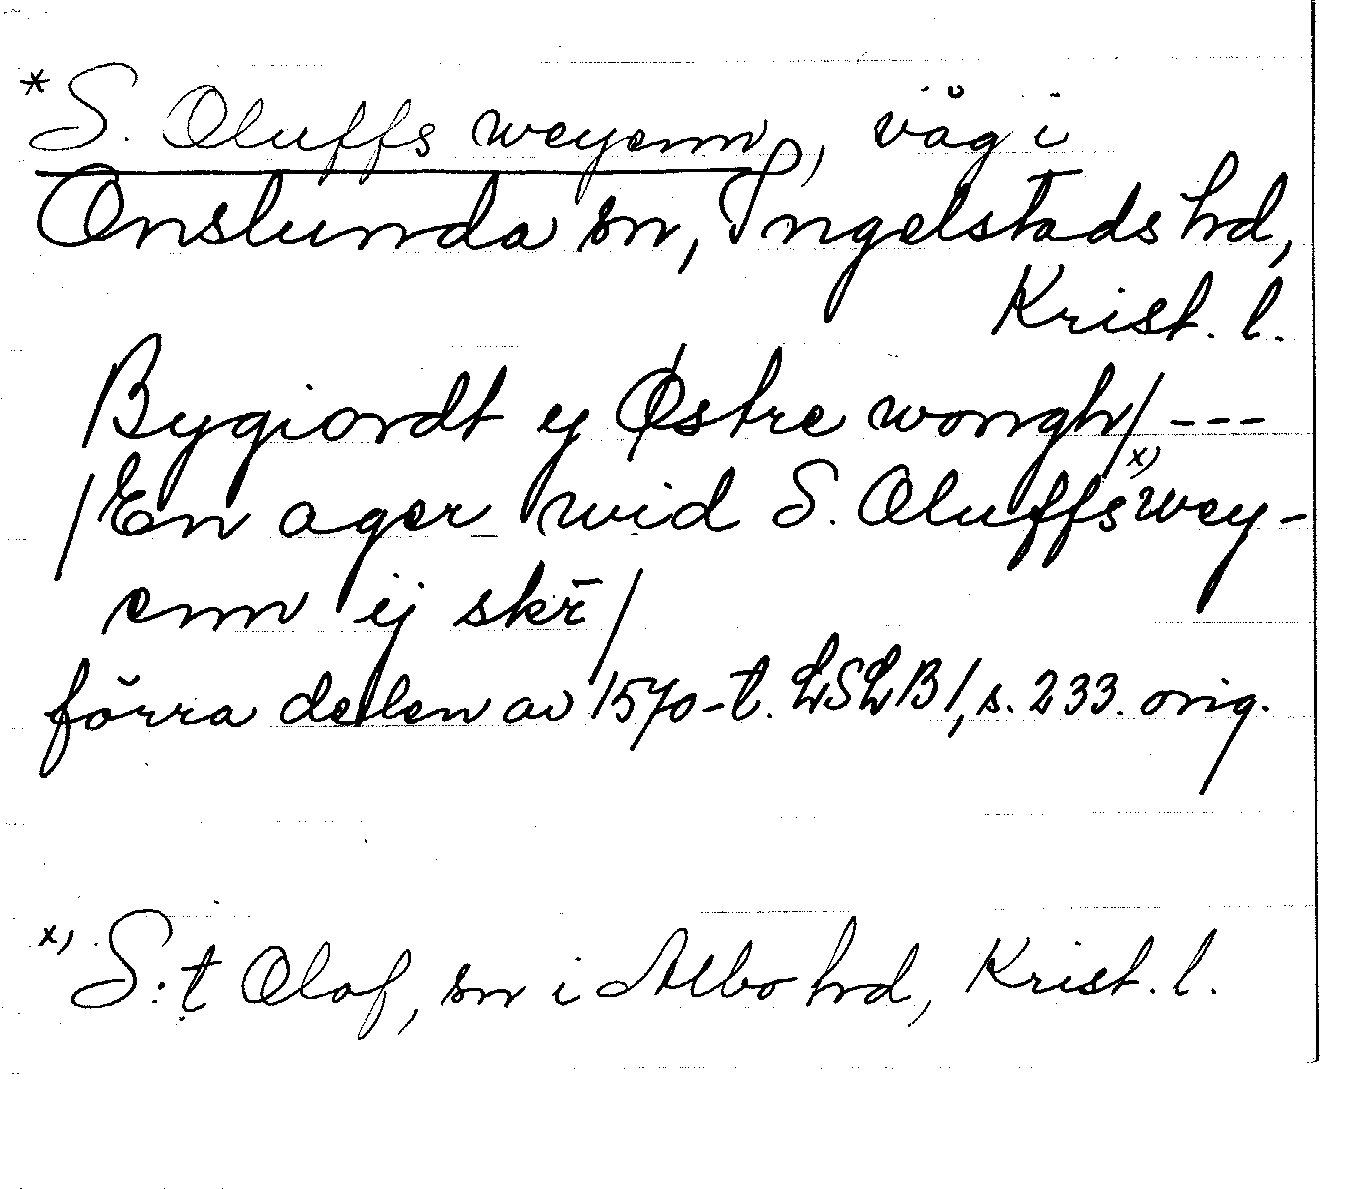 *S. Oluffs weyenn, väg i
Onslunda sn, Ingelstads hd,
Krist. l.
Bygiordt ey Østre wongh/ ---
/En ager wid S. Oluffs x) wey-
enn ij skr̄/
förra delen av 1570-t. LSLB1, s. 233. orig.
x) S:t Olof, sn i Albo hd, Krist. l.